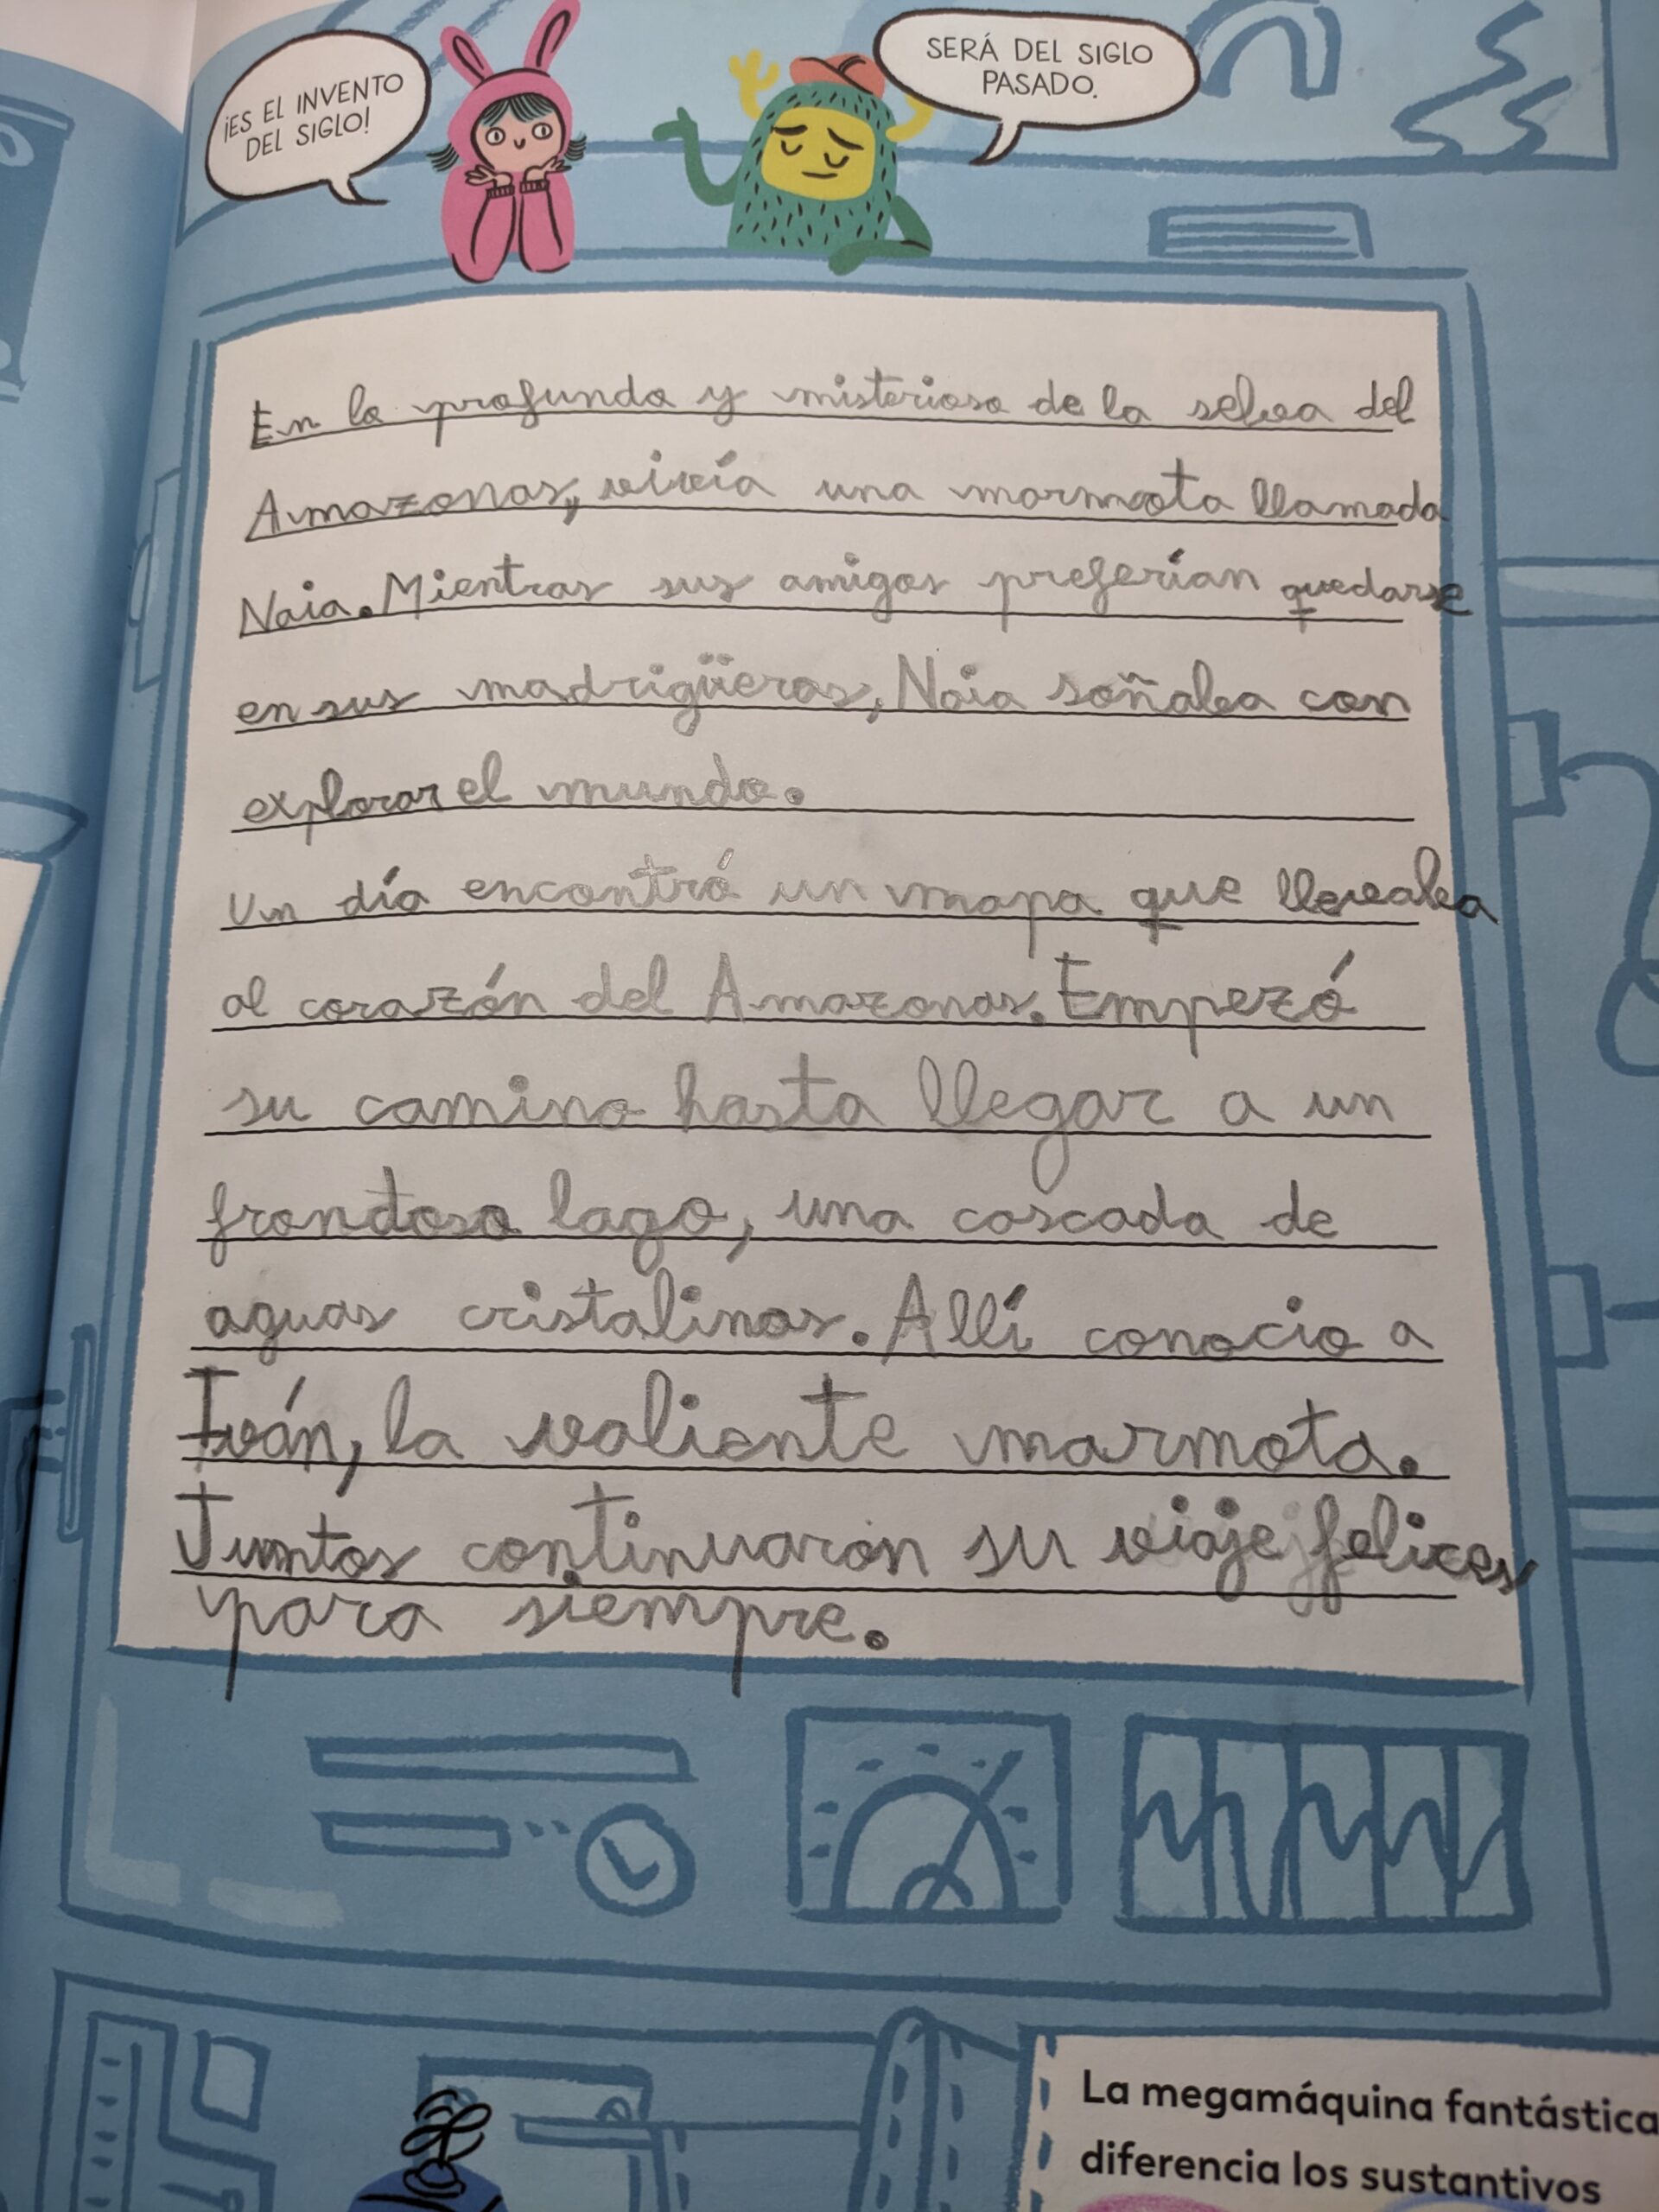 ¡ES EL INVENTO
DEL SIGLO!
SERÁ DEL SIGLO
PASADO.
En lo profundo y misterioso de la selva del
Amazonas, vivía una marmota llamada
Naia. Mientras sus amigos preferían quedarse
en sus madrigüeras, Naia soñaba con
explorar el mundo.
Un día encontró un mapa que llevaba
al corazón del Amazonas. Empezó
su camino hasta llegar a un
frondoso lago, una cascada de
aguas cristalinas. Allí conocio a
Iván, la valiente marmota.
Juntos continuaron su viaje felices
para siempre.
La megamáquina fantástica
diferencia los sustantivos